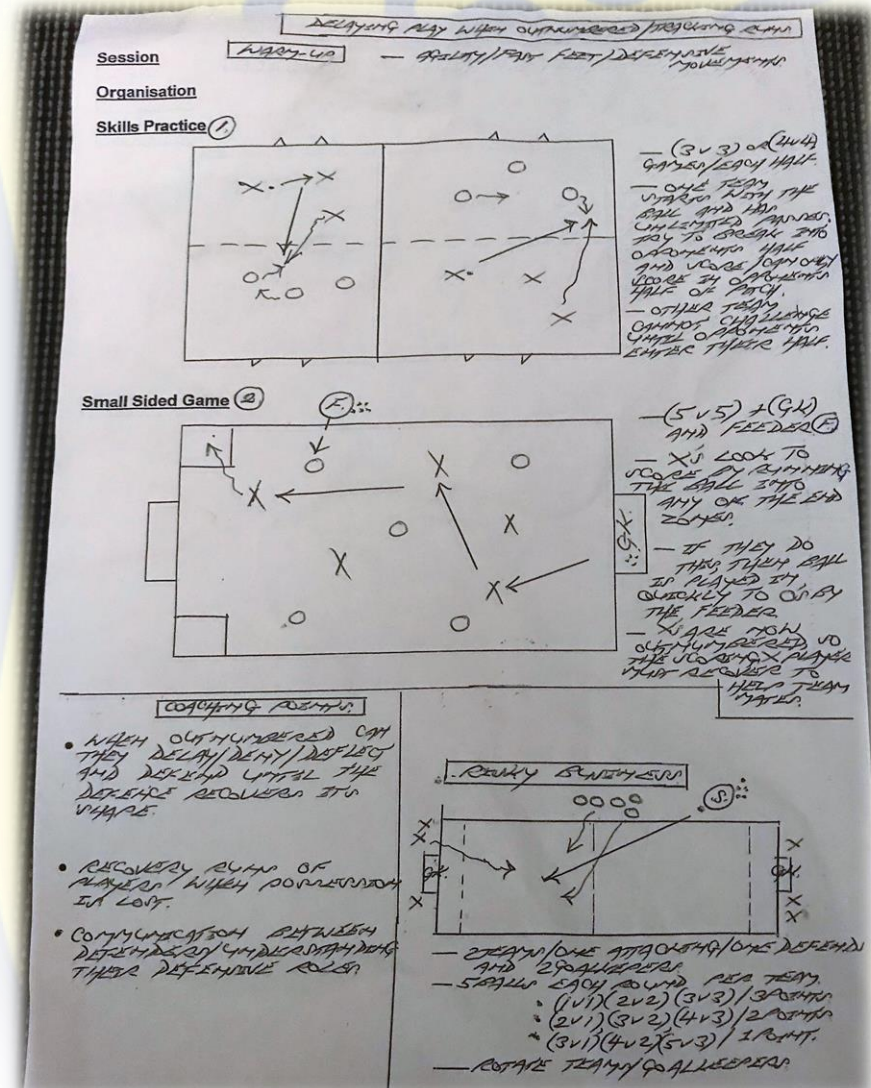 DELAYING PLAY WHEN OUTNUMBERED/TRACKING RUNS
Session
WARM-UP
— AGILITY/FAST FEET/DEFENSIVE
MOVEMENTS.
Organisation
Skills Practice 1.
— (3v3) OR (4v4)
GAMES/EACH HALF.
— ONE TEAM
STARTS WITH THE
BALL AND HAS
UNLIMITED PASSES,
TRY TO BREAK INTO
OPPONENTS HALF
AND SCORE/CAN ONLY
SCORE IN OPPONENTS
HALF OF PITCH.
— OTHER TEAM
CANNOT CHALLENGE
UNTIL OPPONENTS
ENTER THEIR HALF.
Small Sided Game 2
F.
G.K.
— (5v5) + (GK)
AND FEEDER F.
— X'S LOOK TO
SCORE BY RUNNING
THE BALL INTO
ANY OF THE END
ZONES.
— IF THEY DO
THIS, THEN BALL
IS PLAYED IN
QUICKLY TO O'S BY
THE FEEDER
— X'S ARE NOW
OUTNUMBERED, SO
THE SCORING X PLAYER
MUST RECOVER TO
HELP TEAM
MATES.
COACHING POINTS.
• WHEN OUTNUMBERED CAN
THEY DELAY/DENY/DEFLECT
AND DEFEND UNTIL THE
DEFENCE RECOVERS ITS
SHAPE.
• RECOVERY RUNS OF
PLAYERS WHEN POSSESSION
IS LOST.
• COMMUNICATION BETWEEN
DEFENDERS/UNDERSTANDING
THEIR DEFENSIVE ROLES.
RISKY BUSINESS
S.
GK
GK
— 2 TEAMS/ONE ATTACKING/ONE DEFENDS
AND 2 GOALKEEPERS
— 5 BALLS EACH ROUND PER TEAM.
• (1v1)(2v2)(3v3)/3 POINTS
• (2v1)(3v2)(4v3)/2 POINTS
• (3v1)(4v2)(5v3)/1 POINT.
— ROTATE TEAMS/GOALKEEPERS